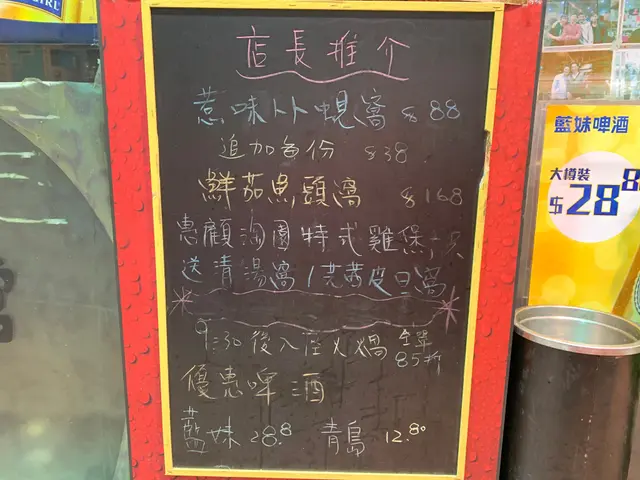 店長推介
惹味卜卜蜆窩 $88
追加各份 $38
鮮茄魚頭窩 $168
惠顧海園特式雞煲
送清湯窩/芫茜皮旦窩
9:30後入座火鍋 全單
85折
優惠啤酒
藍妹 28.8 青島 12.80
藍妹啤酒
大樽裝
$28.8
GIRL